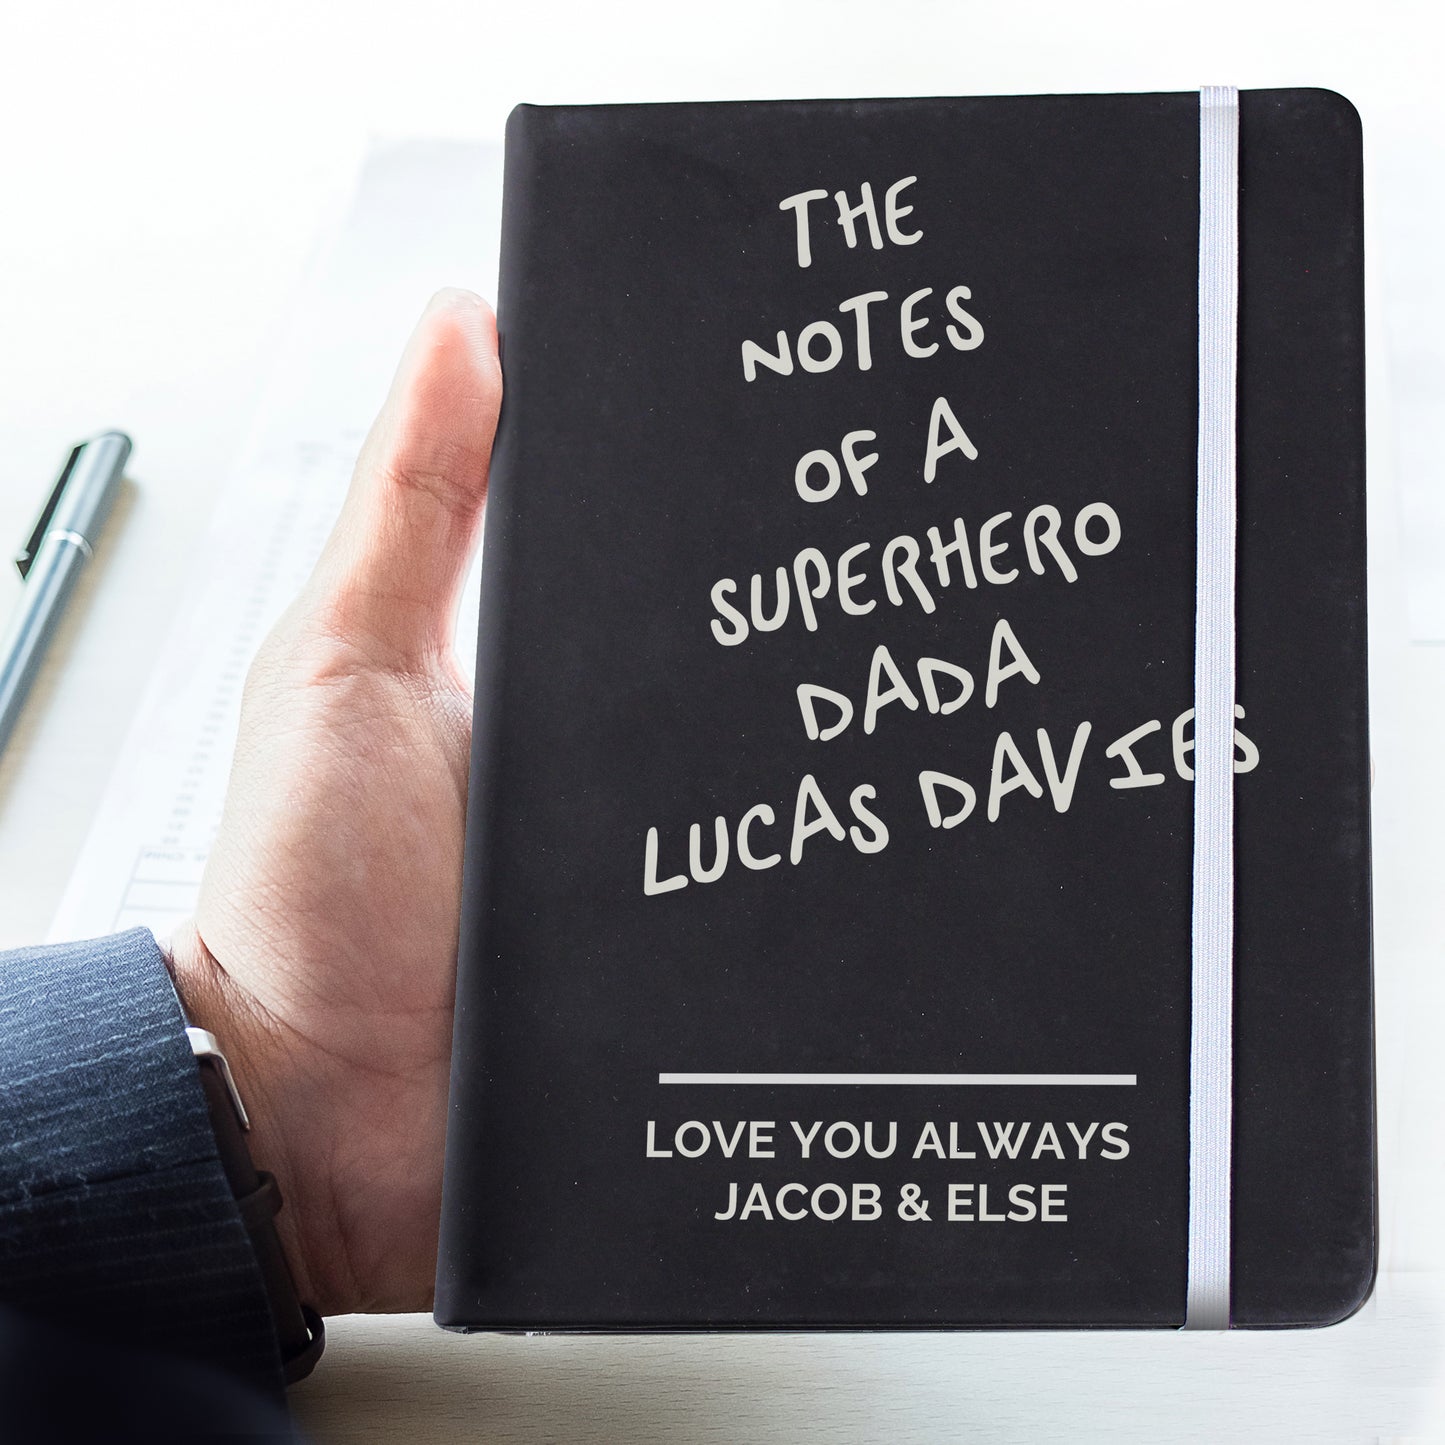 THE
NOTES
OF A
SUPERHERO
DADA
LUCAS DAVIES
LOVE YOU ALWAYS
JACOB & ELSE